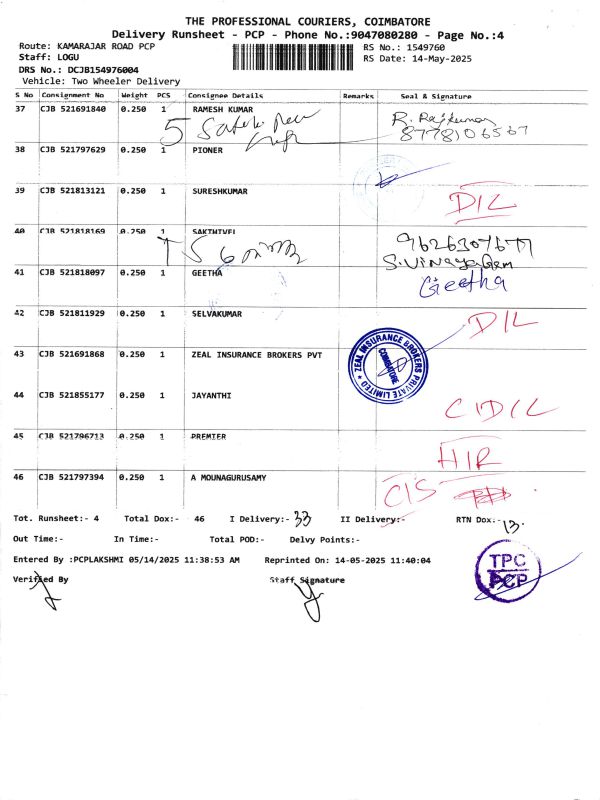 THE PROFESSIONAL COURIERS, COIMBATORE
Delivery Runsheet - PCP - Phone No.:9047080280 - Page No.:4
Route: KAMARAJAR ROAD PCP
RS No.: 1549760
Staff: LOGU
RS Date: 14-May-2025
DRS No.: DCJB154976004
Vehicle: Two Wheeler Delivery
S No Consignment No Weight PCS Consignee Details Remarks Seal & Signature
37 CJB 521691840 0.250 1 RAMESH KUMAR
5
R. Rajkumar
8778106567
38 CJB 521797629 0.250 1 PIONER
39 CJB 521813121 0.250 1 SURESHKUMAR D/L
40 CJB 521818169 0.250 1 SAKTHIVEL
9626307677
S.Vinayagam
41 CJB 521818097 0.250 1 GEETHA Geetha
42 CJB 521811929 0.250 1 SELVAKUMAR D/L
43 CJB 521691868 0.250 1 ZEAL INSURANCE BROKERS PVT
ZEAL INSURANCE BROKERS PRIVATE LIMITED
COIMBATORE
44 CJB 521855177 0.250 1 JAYANTHI C/D/L
45 CJB 521796713 0.250 1 PREMIER H/R
46 CJB 521797394 0.250 1 A MOUNAGURUSAMY C/S
Tot. Runsheet:- 4 Total Dox:- 46 I Delivery:- 33 II Delivery:- RTN Dox:- 13
Out Time:- In Time:- Total POD:- Delvy Points:-
Entered By :PCPLAKSHMI 05/14/2025 11:38:53 AM Reprinted On: 14-05-2025 11:40:04
TPC
PCP
Verified By Staff Signature